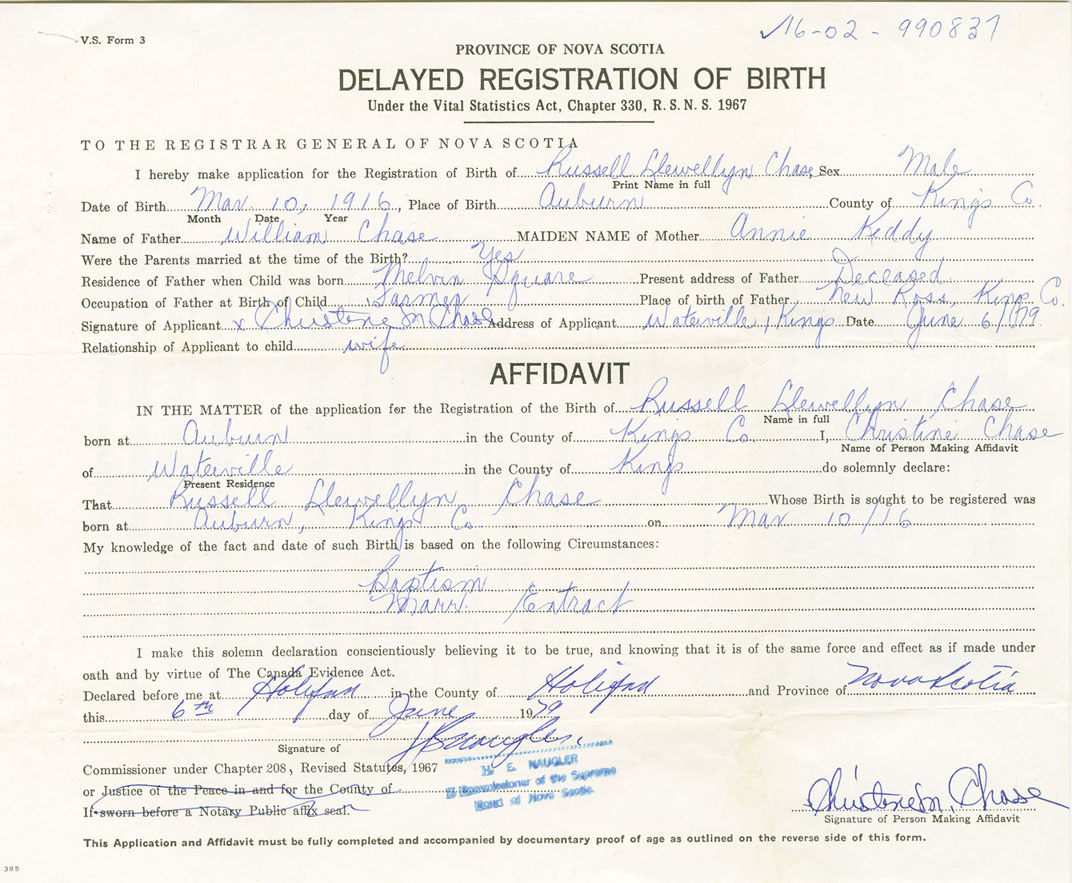 V.S. Form 3
16-02-990837
PROVINCE OF NOVA SCOTIA
DELAYED REGISTRATION OF BIRTH
Under the Vital Statistics Act, Chapter 330, R.S.N.S. 1967
TO THE REGISTRAR GENERAL OF NOVA SCOTIA
I hereby make application for the Registration of Birth of Russell Llewellyn Chase Sex Male
Print Name in full
Date of Birth Mar 10, 1916, Place of Birth Auburn County of Kings Co.
Month Date Year
Name of Father William Chase MAIDEN NAME of Mother Annie Keddy
Were the Parents married at the time of the Birth? Yes
Residence of Father when Child was born Melvin Square Present address of Father Deceased
Occupation of Father at Birth of Child Farmer Place of birth of Father New Ross, Kings Co.
Signature of Applicant x Christene M. Chase Address of Applicant Waterville, Kings Date June 6/79
Relationship of Applicant to child wife
AFFIDAVIT
IN THE MATTER of the application for the Registration of the Birth of Russell Llewellyn Chase
Name in full
born at Auburn in the County of Kings Co. I, Christine Chase
Name of Person Making Affidavit
of Waterville in the County of Kings do solemnly declare:
Present Residence
That Russell Llewellyn Chase Whose Birth is sought to be registered was
born at Auburn, Kings Co on Mar 10/16
My knowledge of the fact and date of such Birth is based on the following Circumstances:
Baptism
Marr. Extract
I make this solemn declaration conscientiously believing it to be true, and knowing that it is of the same force and effect as if made under
oath and by virtue of The Canada Evidence Act.
Declared before me at Halifax in the County of Halifax and Province of Nova Scotia
this 6th day of June 1979
Signature of
Commissioner under Chapter 208, Revised Statutes, 1967
H. E. NAUGLER
A Commissioner of the Supreme
Court of Nova Scotia
or Justice of the Peace in and for the County of
If sworn before a Notary Public affix seal.
Christene M. Chase
Signature of Person Making Affidavit
This Application and Affidavit must be fully completed and accompanied by documentary proof of age as outlined on the reverse side of this form.
385